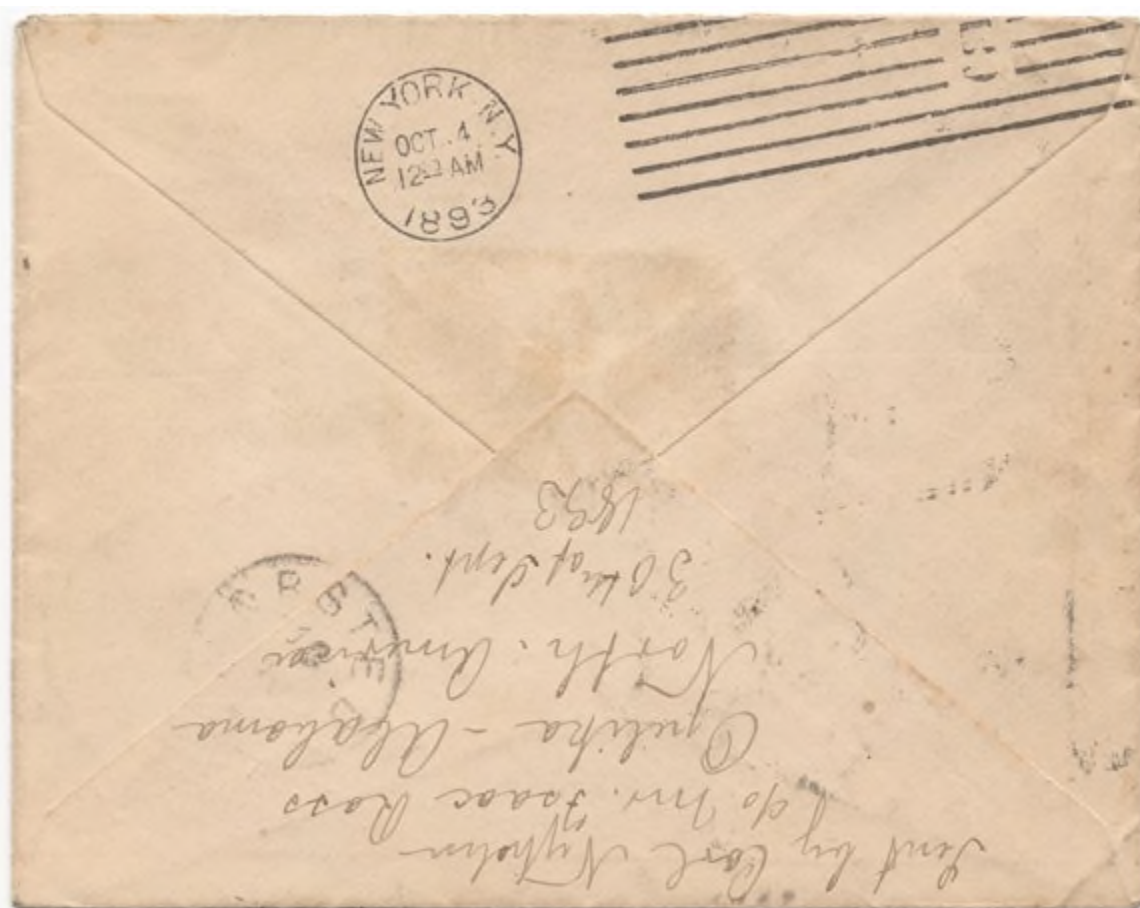 NEW YORK. N.Y.
OCT. 4
12 AM
1893
Sent by Carl Nyholm
c/o Mr. Isaac Ross
Opelika - Alabama
North. America
30th of Sept.
1893